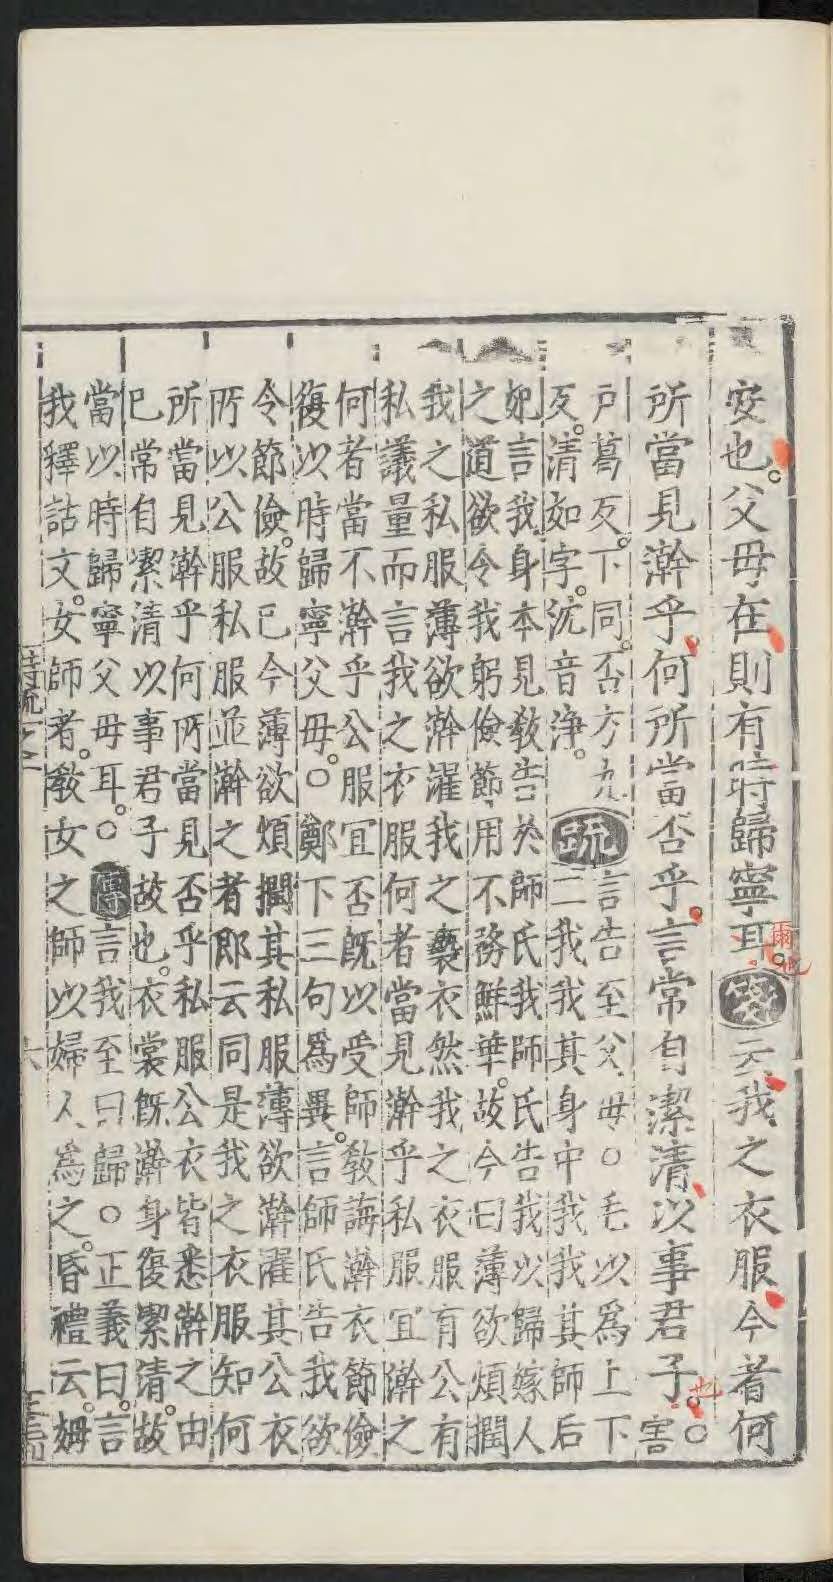 安也。父母在則有時歸寧耳。箋云我之衣服今者何
爾也
所當見澣乎何所當否乎言常自潔清以事君子。○害
也
戸葛反。下同。否方九
反。清如字。沈音淨。
疏
言告至父母○毛以爲上下
二我我其身中我我其師后
妃言我身本見敎告於師氏我師氏告我以歸嫁人
之道欲令我躬儉節用不務鮮華。故今曰薄欲煩撋
我之私服薄欲澣濯我之褻衣然我之衣服有公有
私議量而言我之衣服何者當見澣乎私服宜澣之
何者當不澣乎公服宜否既以受師敎誨澣衣節儉
復以時歸寧父母。○鄭下三句爲異。言師氏告我欲
令節儉。故已今薄欲煩撋其私服薄欲澣濯其公衣
所以公服私服並澣之者即云同是我之衣服知何
所當見澣乎何所當見否乎私服公衣皆悉澣之由
已常自潔清以事君子故也。衣裳既澣身復潔清。故
當以時歸寧父母耳。○傳言我至曰歸○正義曰。言
我釋詁文。女師者。敎女之師以婦人爲之。昏禮云。姆